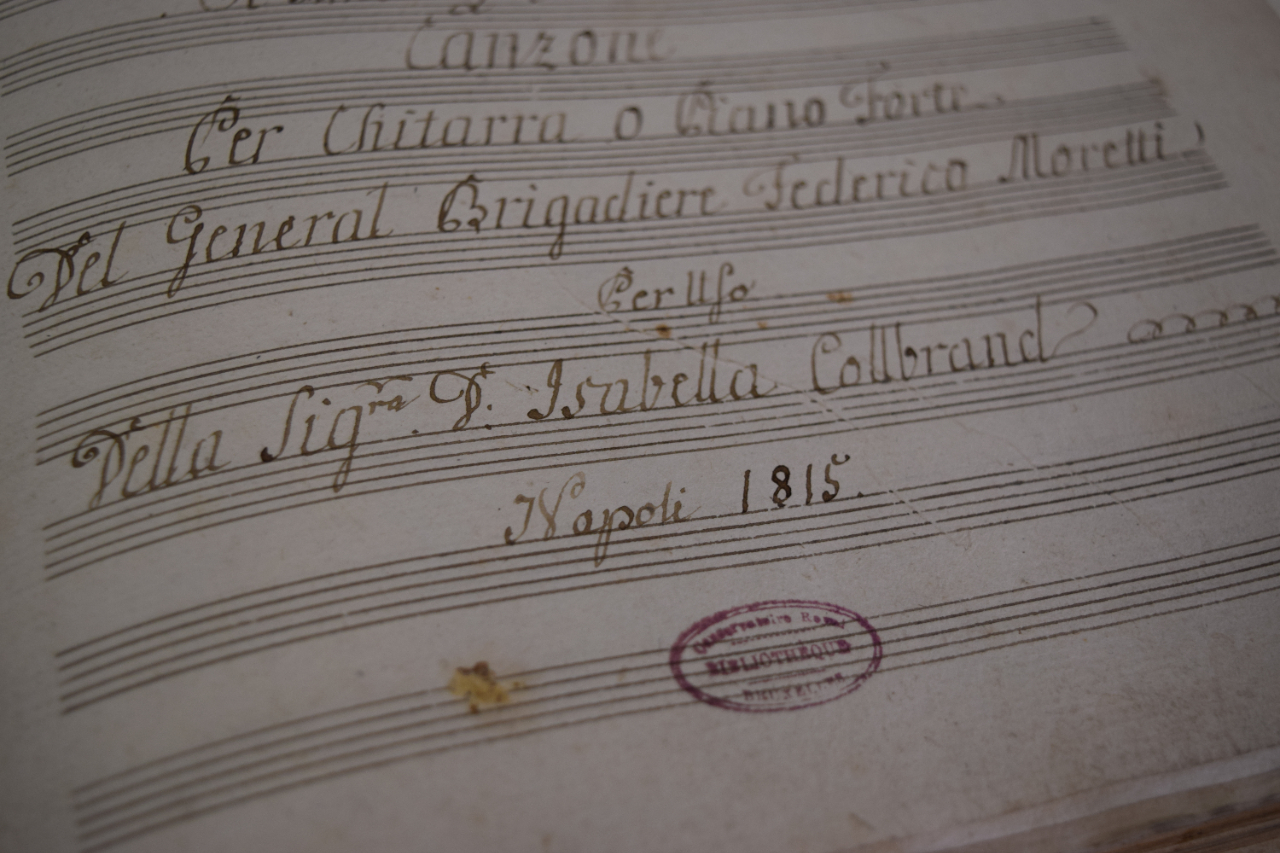 Canzone
Per Chitarra o Piano Forte
Del General Brigadiere Federico Moretti
Per Uso
Della Sig.ra D. Isabella Collbrand
Napoli 1815.
Conservatoire Royal
BIBLIOTHÈQUE
BRUXELLES